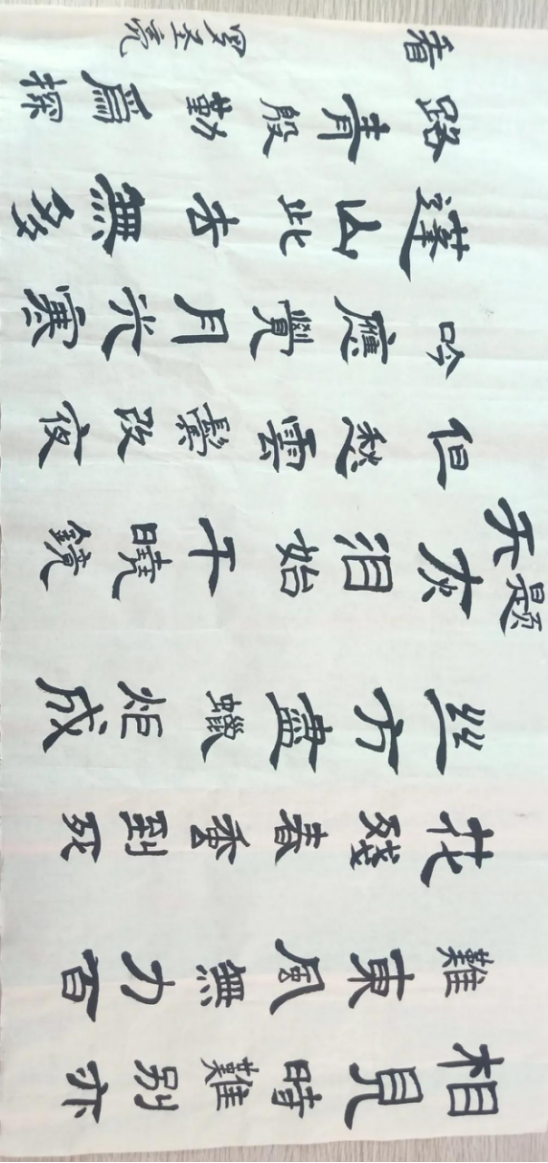 无题
相見時難別亦
難東風無力百
花殘春蚕到死
丝方盡蠟炬成
灰泪始干曉鏡
但愁雲鬓改夜
吟應覺月光寒
蓬山此去無多
路青殷勤爲探
看